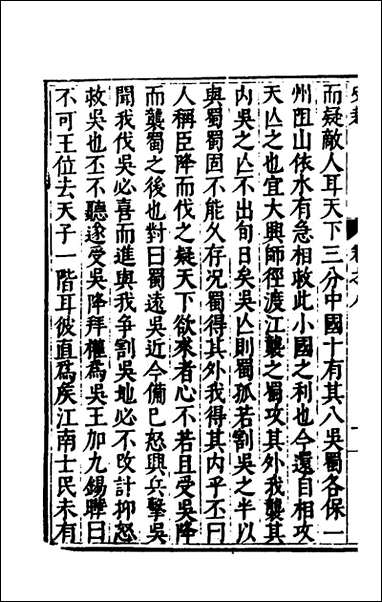 而疑敵人耳天下三分中國十有其八吳蜀各保一
州阻山依水有急相救此小國之利也今還自相攻
天亾之也宜大興師徑渡江襲之蜀攻其外我襲其
内吳之亾不出旬日矣吳亾則蜀孤若割吳之半以
與蜀蜀固不能久存況蜀得其外我得其内乎丕曰
人稱臣降而伐之疑天下欲來者心不若且受吳降
而襲蜀之後也對曰蜀遠吳近今備已怒興兵擊吳
聞我伐吳必喜而進與我爭割吳地必不改計抑怒
救吳也丕不聽遂受吳降拜權爲吳王加九錫曄曰
不可王位去天子一階耳彼直爲矦江南士民未有